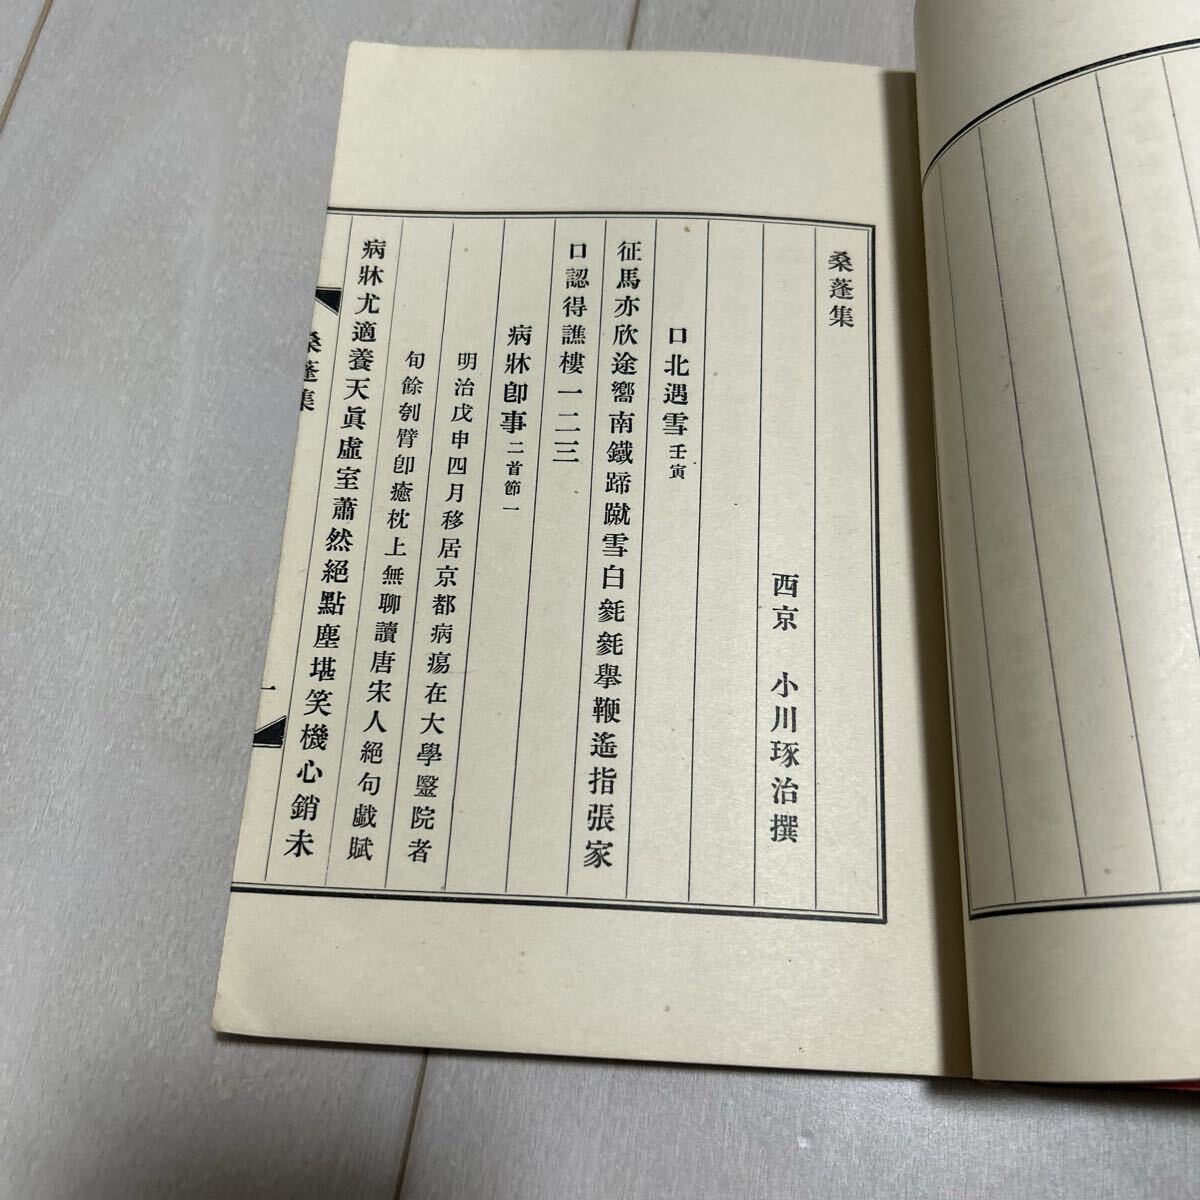 桑蓬集
西京　小川琢治撰
口北遇雪 壬寅
征馬亦欣途嚮南鐵蹄蹴雪白毿毿擧鞭遙指張家
口認得譙樓一二三
病牀卽事 二首節一
明治戊申四月移居京都病瘍在大學醫院者
旬餘刳臂卽癒枕上無聊讀唐宋人絕句戲賦
病牀尤適養天眞虛室蕭然絕點塵堪笑機心銷未
桑蓬集
一